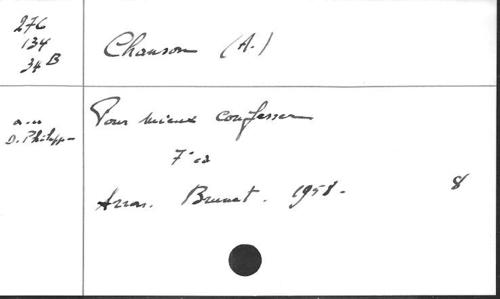 276
134
34 B
Chanson (A.)
D. Philipp
Pour mieux confesser
7e éd
Arras. Brunet. 1958.
8